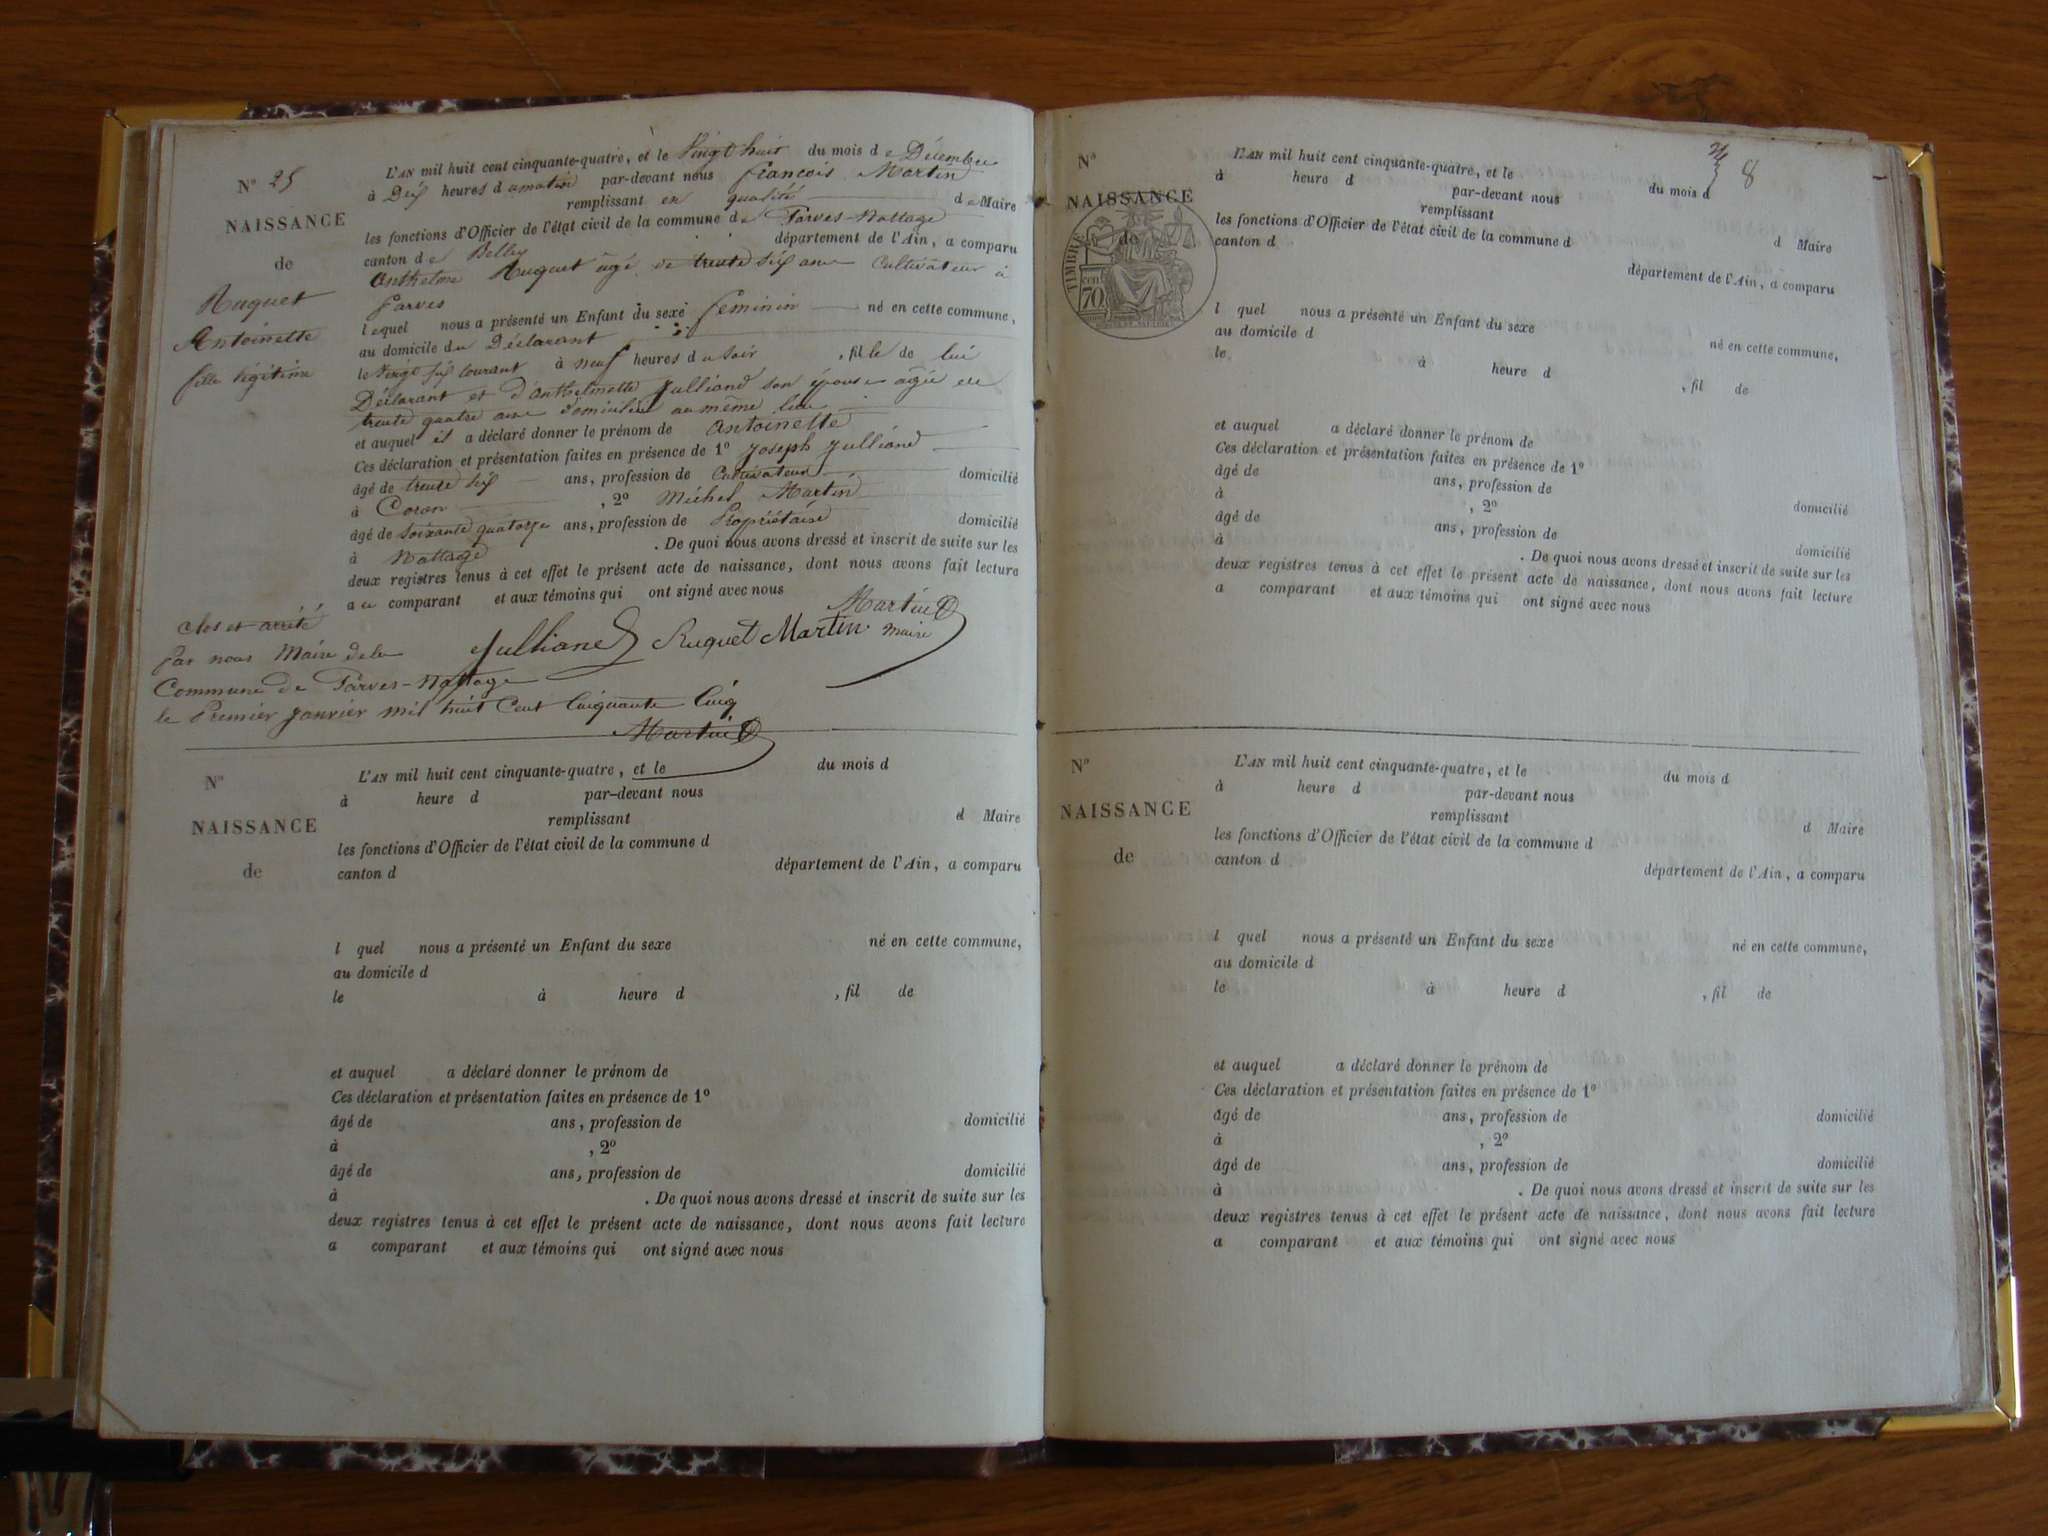 N° 25
NAISSANCE
de
Ruguet
Antoinette
fille légitime
L'AN mil huit cent cinquante-quatre, et le Vingt huit du mois de Décembre
à Dix heures du matin par-devant nous François Martin
remplissant en qualité de Maire
les fonctions d'Officier de l'état civil de la commune de Parves-Nattage
canton de Belley département de l'Ain, a comparu
Anthelme Ruguet âgé de trente six ans Cultivateur à
Parves
lequel nous a présenté un Enfant du sexe féminin né en cette commune,
au domicile du Déclarant
le Vingt six courant à neuf heures du soir, fille de lui
Déclarant et d'Anthelmette Julliand son épouse âgée de
trente quatre ans domiciliée au même lieu
et auquel il a déclaré donner le prénom de Antoinette
Ces déclaration et présentation faites en présence de 1° Joseph Julliand
âgé de trente six ans, profession de Cultivateur domicilié
à Coron, 2° Michel Martin
âgé de soixante quatorze ans, profession de Propriétaire domicilié
à Nattage. De quoi nous avons dressé et inscrit de suite sur les
deux registres tenus à cet effet le présent acte de naissance, dont nous avons fait lecture
au comparant et aux témoins qui ont signé avec nous
Julliand Ruguet Martin Martin
maire
Clos et arrêté
Par nous Maire de la
Commune de Parves-Nattage
le Premier Janvier mil huit Cent Cinquante Cinq
Martin
N°
NAISSANCE
de
L'AN mil huit cent cinquante-quatre, et le du mois d
à heure d par-devant nous
remplissant d Maire
les fonctions d'Officier de l'état civil de la commune d
canton d département de l'Ain, a comparu
l quel nous a présenté un Enfant du sexe né en cette commune,
au domicile d
le à heure d , fil de
et auquel a déclaré donner le prénom de
Ces déclaration et présentation faites en présence de 1°
âgé de ans, profession de domicilié
à , 2°
âgé de ans, profession de domicilié
à . De quoi nous avons dressé et inscrit de suite sur les
deux registres tenus à cet effet le présent acte de naissance, dont nous avons fait lecture
a comparant et aux témoins qui ont signé avec nous
8
N°
NAISSANCE
de
TIMBRE
cen
70
L'AN mil huit cent cinquante-quatre, et le du mois d
à heure d par-devant nous
remplissant d Maire
les fonctions d'Officier de l'état civil de la commune d
canton d département de l'Ain, a comparu
l quel nous a présenté un Enfant du sexe né en cette commune,
au domicile d
le à heure d , fil de
et auquel a déclaré donner le prénom de
Ces déclaration et présentation faites en présence de 1°
âgé de ans, profession de domicilié
à , 2°
âgé de ans, profession de domicilié
à . De quoi nous avons dressé et inscrit de suite sur les
deux registres tenus à cet effet le présent acte de naissance, dont nous avons fait lecture
a comparant et aux témoins qui ont signé avec nous
N°
NAISSANCE
de
L'AN mil huit cent cinquante-quatre, et le du mois d
à heure d par-devant nous
remplissant d Maire
les fonctions d'Officier de l'état civil de la commune d
canton d département de l'Ain, a comparu
l quel nous a présenté un Enfant du sexe né en cette commune,
au domicile d
le à heure d , fil de
et auquel a déclaré donner le prénom de
Ces déclaration et présentation faites en présence de 1°
âgé de ans, profession de domicilié
à , 2°
âgé de ans, profession de domicilié
à . De quoi nous avons dressé et inscrit de suite sur les
deux registres tenus à cet effet le présent acte de naissance, dont nous avons fait lecture
a comparant et aux témoins qui ont signé avec nous